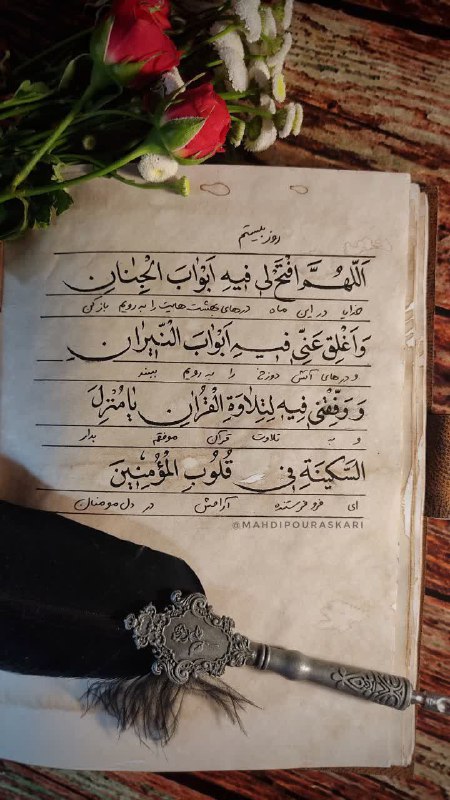 روز بیستم
اَللّهُمَّ افْتَحْ لی فیهِ اَبْوابَ الْجِنانِ
خدایا در این ماه درهای بهشت هایت را به رویم باز کن
وَ اَغْلِق عَنّی فیهِ اَبْوابَ النّیرانِ
و درهای آتش دوزخ را به رویم ببند
وَ وَفِّقْنی فیهِ لِتِلاوَةِ الْقُرْانِ یا مُنْزِلَ
و به تلاوت قرآن موفقم بدار
السَّکینَةِ فی قُلُوبِ الْمُؤْمِنینَ
ای فرو فرستنده آرامش در دل مومنان
@MAHDIPOURASKARI